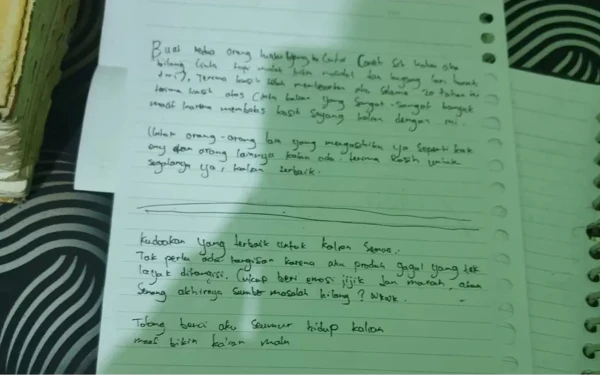 Buat kedua orang
bilang cinta tapi malah bikin masalah dan
Terima kasih telah membesarkan aku selama 20 tahun ini
terima kasih atas cinta kalian yang sangat-sangat banyak
maaf karena membalas kasih sayang kalian dengan ini.
Untuk orang-orang lain yang mengasihiku ya seperti kak
emy dan orang lainnya kalau ada. terima kasih untuk
segalanya ya, kalian terbaik.
Kudoakan yang terbaik untuk kalian semua..
Tak perlu ada tangisan karena aku produk gagal yang tak
layak ditangisi. Cukup beri emosi jijik dan marah, atau
Senang akhirnya sumber masalah hilang? Wkwk.
Tolong benci aku seumur hidup kalian
maaf bikin kalian malu